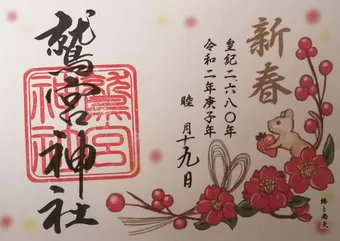 新春
皇紀二六八〇年
令和二年庚子年
睦月十九日
鷲宮神社
鷲宮
神社
椿と南天